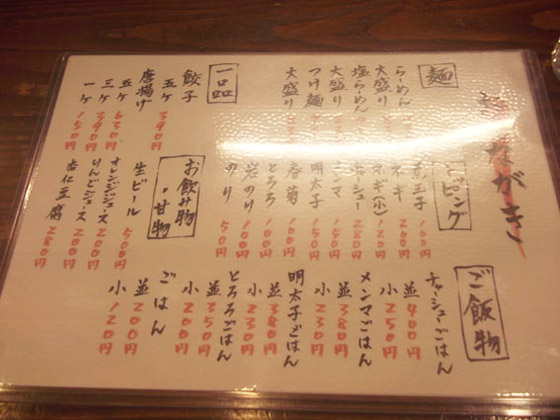 がき
麺
らーめん
大盛り
塩らーめん
大盛り
つけ麺
大盛り
一品
餃子
五ケ 390円
唐揚げ
五ケ 630円
三ケ 390円
一ケ 150円
ピング
玉子 100円
ネギ 200円
ネギ(小) 120円
チャーシュー 280円
メンマ 150円
明太子 150円
春菊 100円
とろろ 100円
岩のり 100円
のり 50円
お飲み物・甘物
生ビール 500円
オレンジジュース 200円
りんごジュース 200円
杏仁豆腐 280円
ご飯物
チャーシューごはん
並 400円
小 250円
メンマごはん
並 380円
小 230円
明太子ごはん
並 380円
小 230円
とろろごはん
並 350円
小 200円
ごはん
並 200円
小 120円